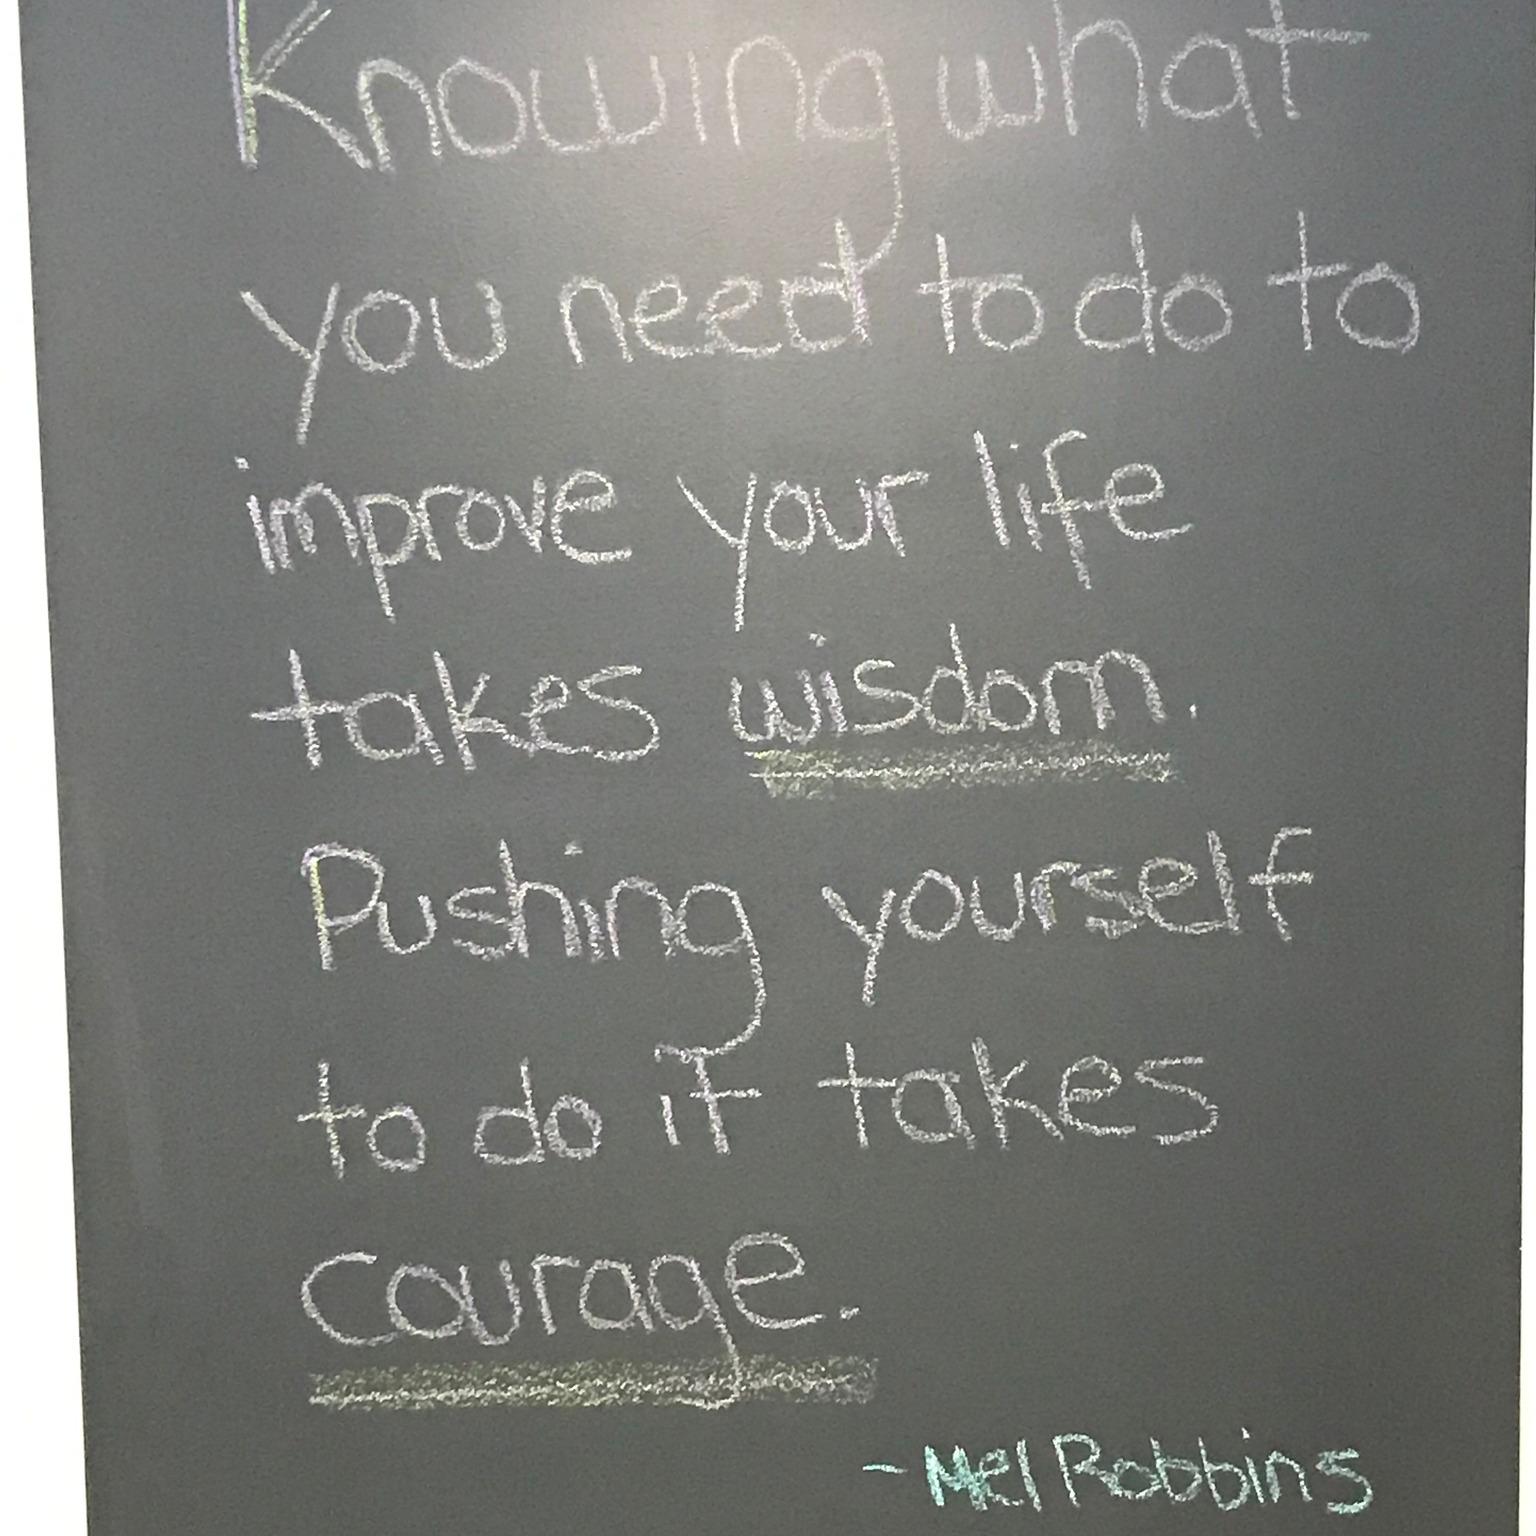 Knowing what
you need to do to
improve your life
takes wisdom.
Pushing yourself
to do it takes
courage.
-Mel Robbins